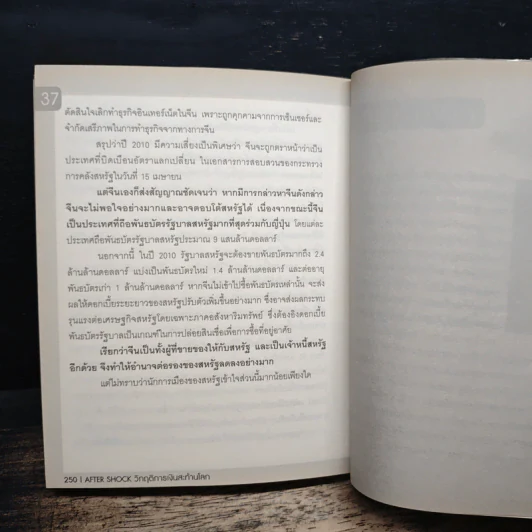 37
ตัดสินใจเลิกทำธุรกิจอินเทอร์เน็ตในจีน เพราะถูกคุกคามจากการเซ็นเซอร์และ
จำกัดเสรีภาพในการทำธุรกิจจากทางการจีน
สรุปว่าปี 2010 มีความเสี่ยงเป็นพิเศษว่า จีนจะถูกตราหน้าว่าเป็น
ประเทศที่บิดเบือนอัตราแลกเปลี่ยน ในเอกสารการสอบสวนของกระทรวง
การคลังสหรัฐในวันที่ 15 เมษายน
แต่จีนเองก็ส่งสัญญาณชัดเจนว่า หากมีการกล่าวหาจีนดังกล่าว
จีนจะไม่พอใจอย่างมากและอาจตอบโต้สหรัฐได้ เนื่องจากขณะนี้จีน
เป็นประเทศที่ถือพันธบัตรรัฐบาลสหรัฐมากที่สุดร่วมกับญี่ปุ่น โดยแต่ละ
ประเทศถือพันธบัตรรัฐบาลสหรัฐประมาณ 9 แสนล้านดอลลาร์
นอกจากนี้ ในปี 2010 รัฐบาลสหรัฐจะต้องขายพันธบัตรมากถึง 2.4
ล้านล้านดอลลาร์ แบ่งเป็นพันธบัตรใหม่ 1.4 ล้านล้านดอลลาร์ และต่ออายุ
พันธบัตรเก่า 1 ล้านล้านดอลลาร์ หากจีนไม่เข้าไปซื้อพันธบัตรเหล่านั้น จะส่ง
ผลให้ดอกเบี้ยระยะยาวของสหรัฐปรับตัวเพิ่มขึ้นอย่างมาก ซึ่งอาจส่งผลกระทบ
รุนแรงต่อเศรษฐกิจสหรัฐโดยเฉพาะภาคอสังหาริมทรัพย์ ซึ่งต้องอิงดอกเบี้ย
พันธบัตรรัฐบาลเป็นเกณฑ์ในการปล่อยสินเชื่อเพื่อการซื้อที่อยู่อาศัย
เรียกว่าจีนเป็นทั้งผู้ที่ขายของให้กับสหรัฐ และเป็นเจ้าหนี้สหรัฐ
อีกด้วย จึงทำให้อำนาจต่อรองของสหรัฐลดลงอย่างมาก
แต่ไม่ทราบว่านักการเมืองของสหรัฐเข้าใจส่วนนี้มากน้อยเพียงใด
250 | AFTER SHOCK วิกฤติการเงินสะท้านโลก